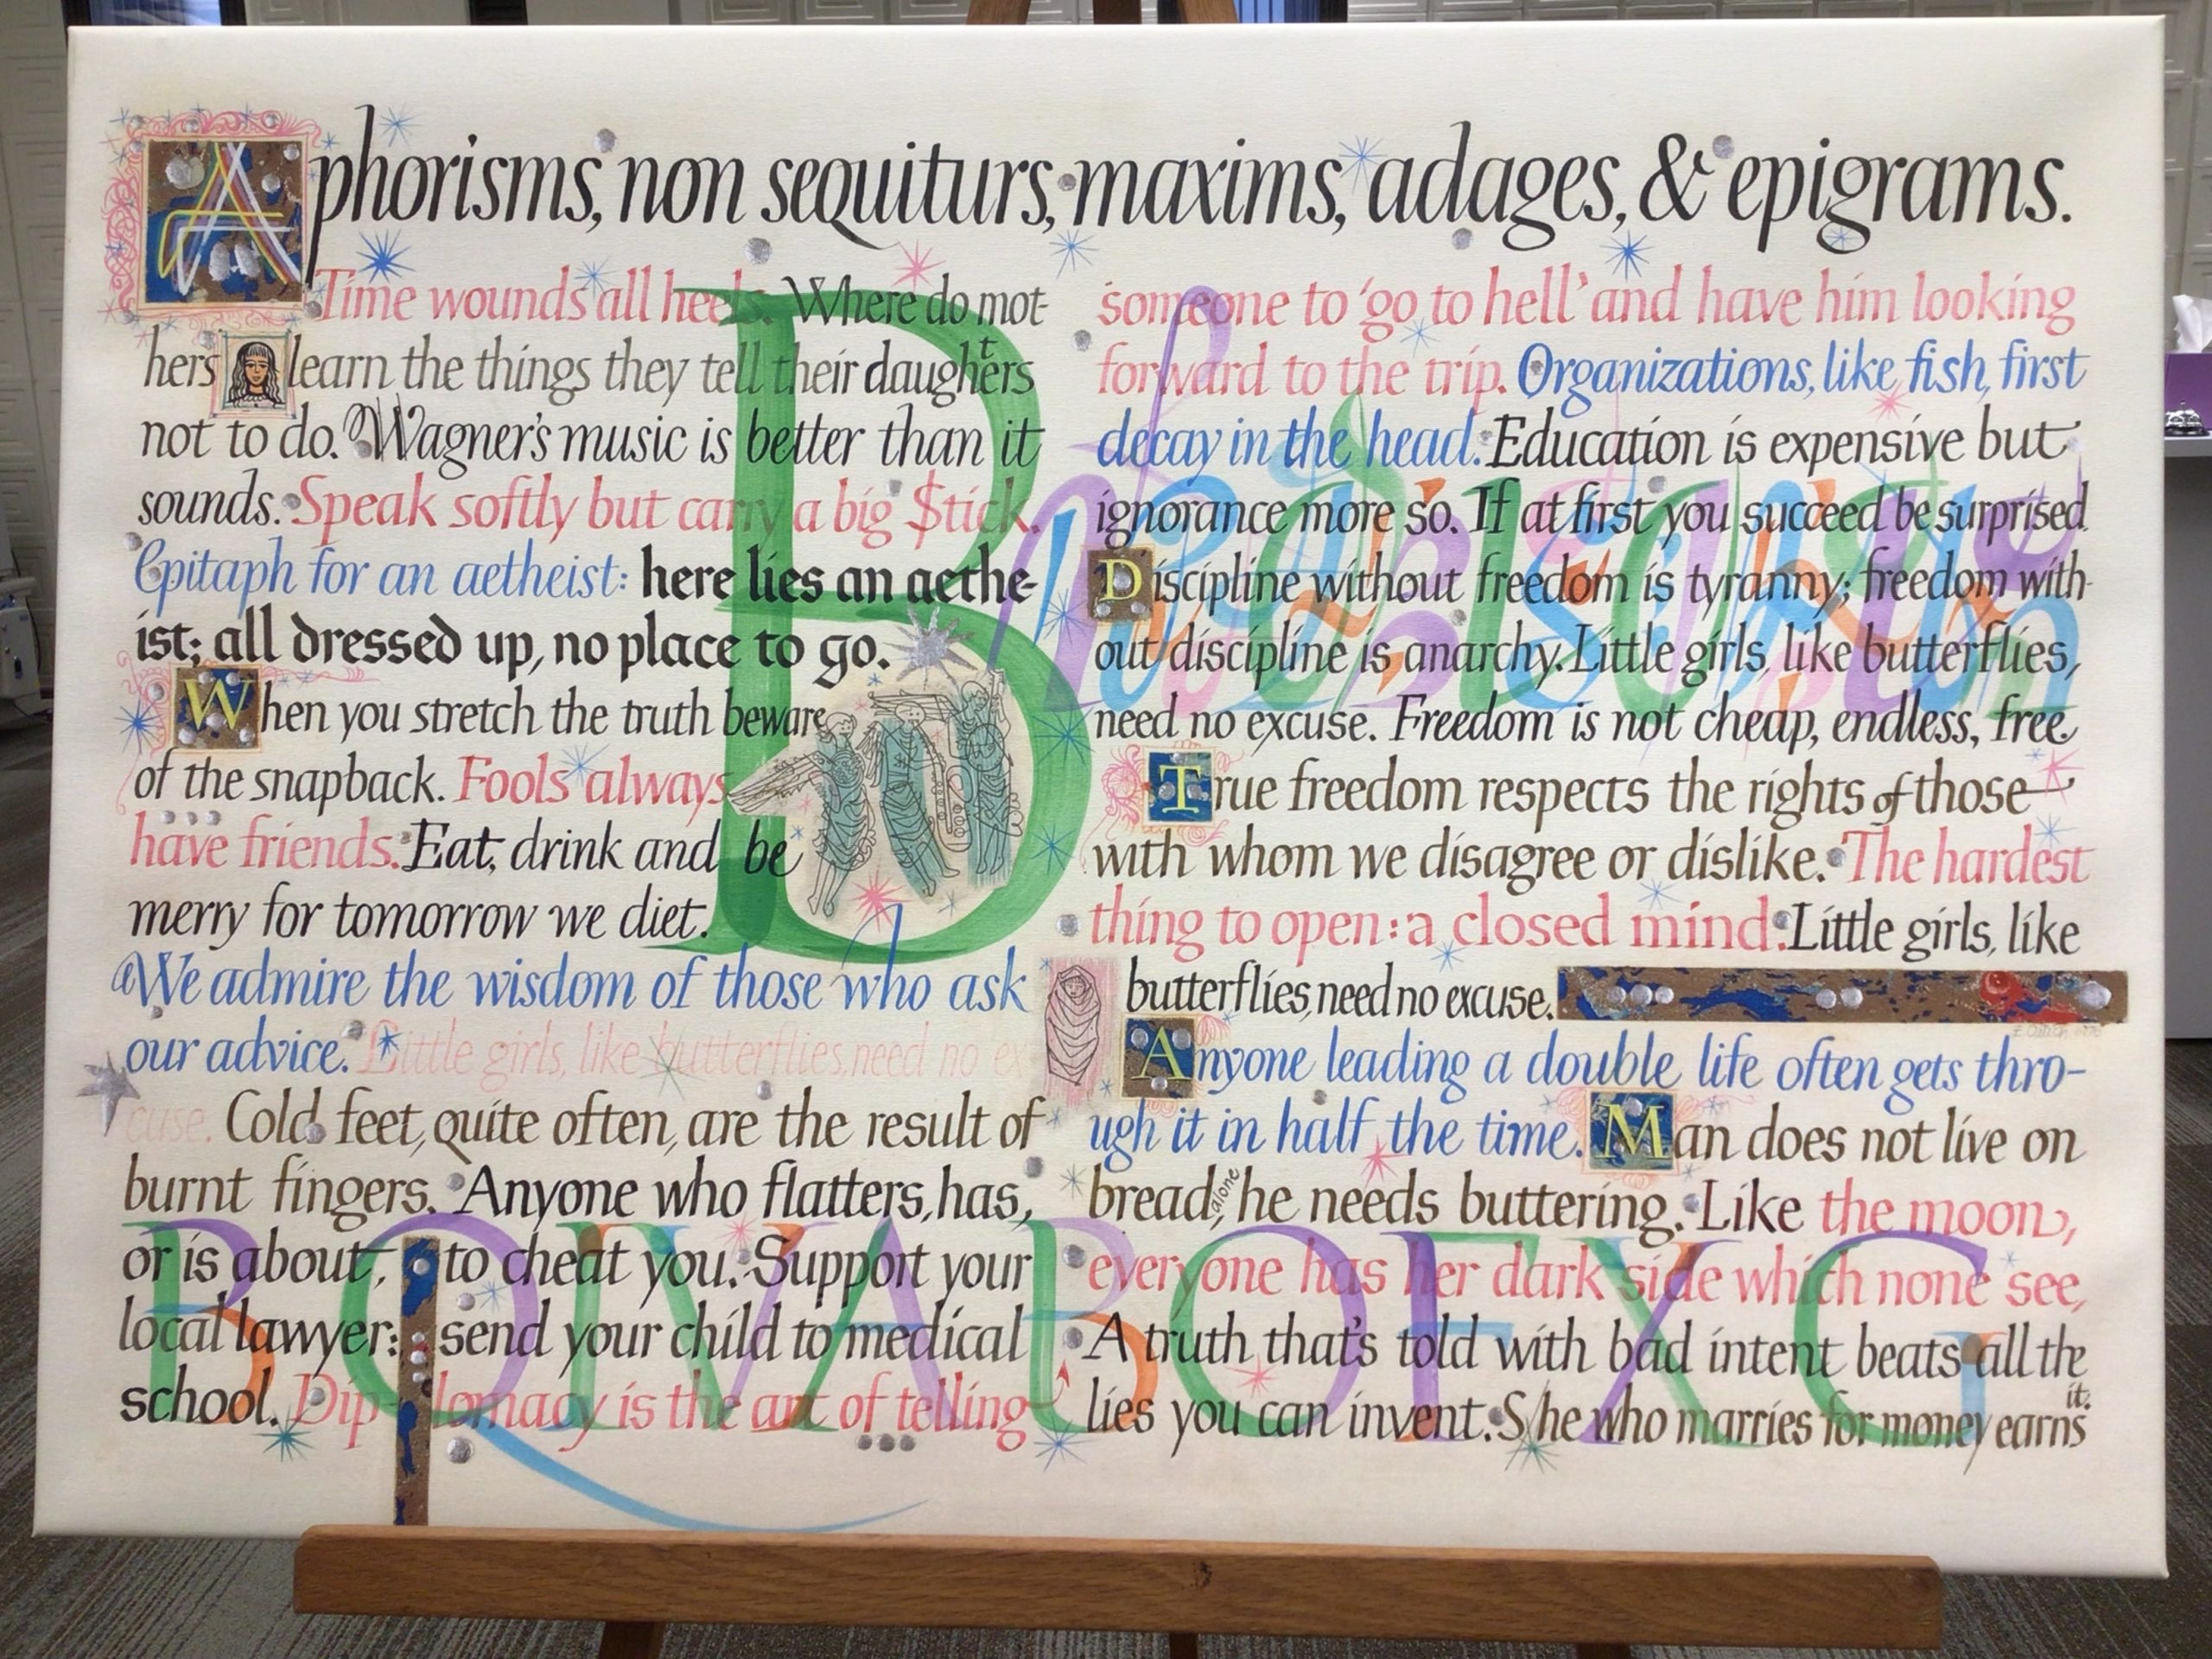 Aphorisms, non sequiturs, maxims, adages, & epigrams.
Time wounds all heels. Where do mot-
hers learn the things they tell their daughters
not to do. Wagner's music is better than it
sounds. Speak softly but carry a big $tick.
Epitaph for an aetheist: here lies an aethe-
ist; all dressed up, no place to go.
When you stretch the truth beware
of the snapback. Fools always
have friends. Eat, drink and be
merry for tomorrow we diet.
We admire the wisdom of those who ask
our advice. Little girls, like butterflies, need no ex
cuse. Cold feet, quite often, are the result of
burnt fingers. Anyone who flatters, has,
or is about, to cheat you. Support your
local lawyer: send your child to medical
school. Dip-lomacy is the art of telling
someone to 'go to hell' and have him looking
forward to the trip. Organizations, like fish, first
decay in the head. Education is expensive but
ignorance more so. If at first you succeed be surprised.
Discipline without freedom is tyranny; freedom with-
out discipline is anarchy. Little girls, like butterflies,
need no excuse. Freedom is not cheap, endless, free.
True freedom respects the rights of those
with whom we disagree or dislike. The hardest
thing to open: a closed mind. Little girls, like
butterflies, need no excuse.
Anyone leading a double life often gets thro-
ugh it in half the time. Man does not live on
bread, alone he needs buttering. Like the moon,
everyone has her dark side which none see,
A truth that's told with bad intent beats all the
lies you can invent. S/he who marries for money earns it.
B